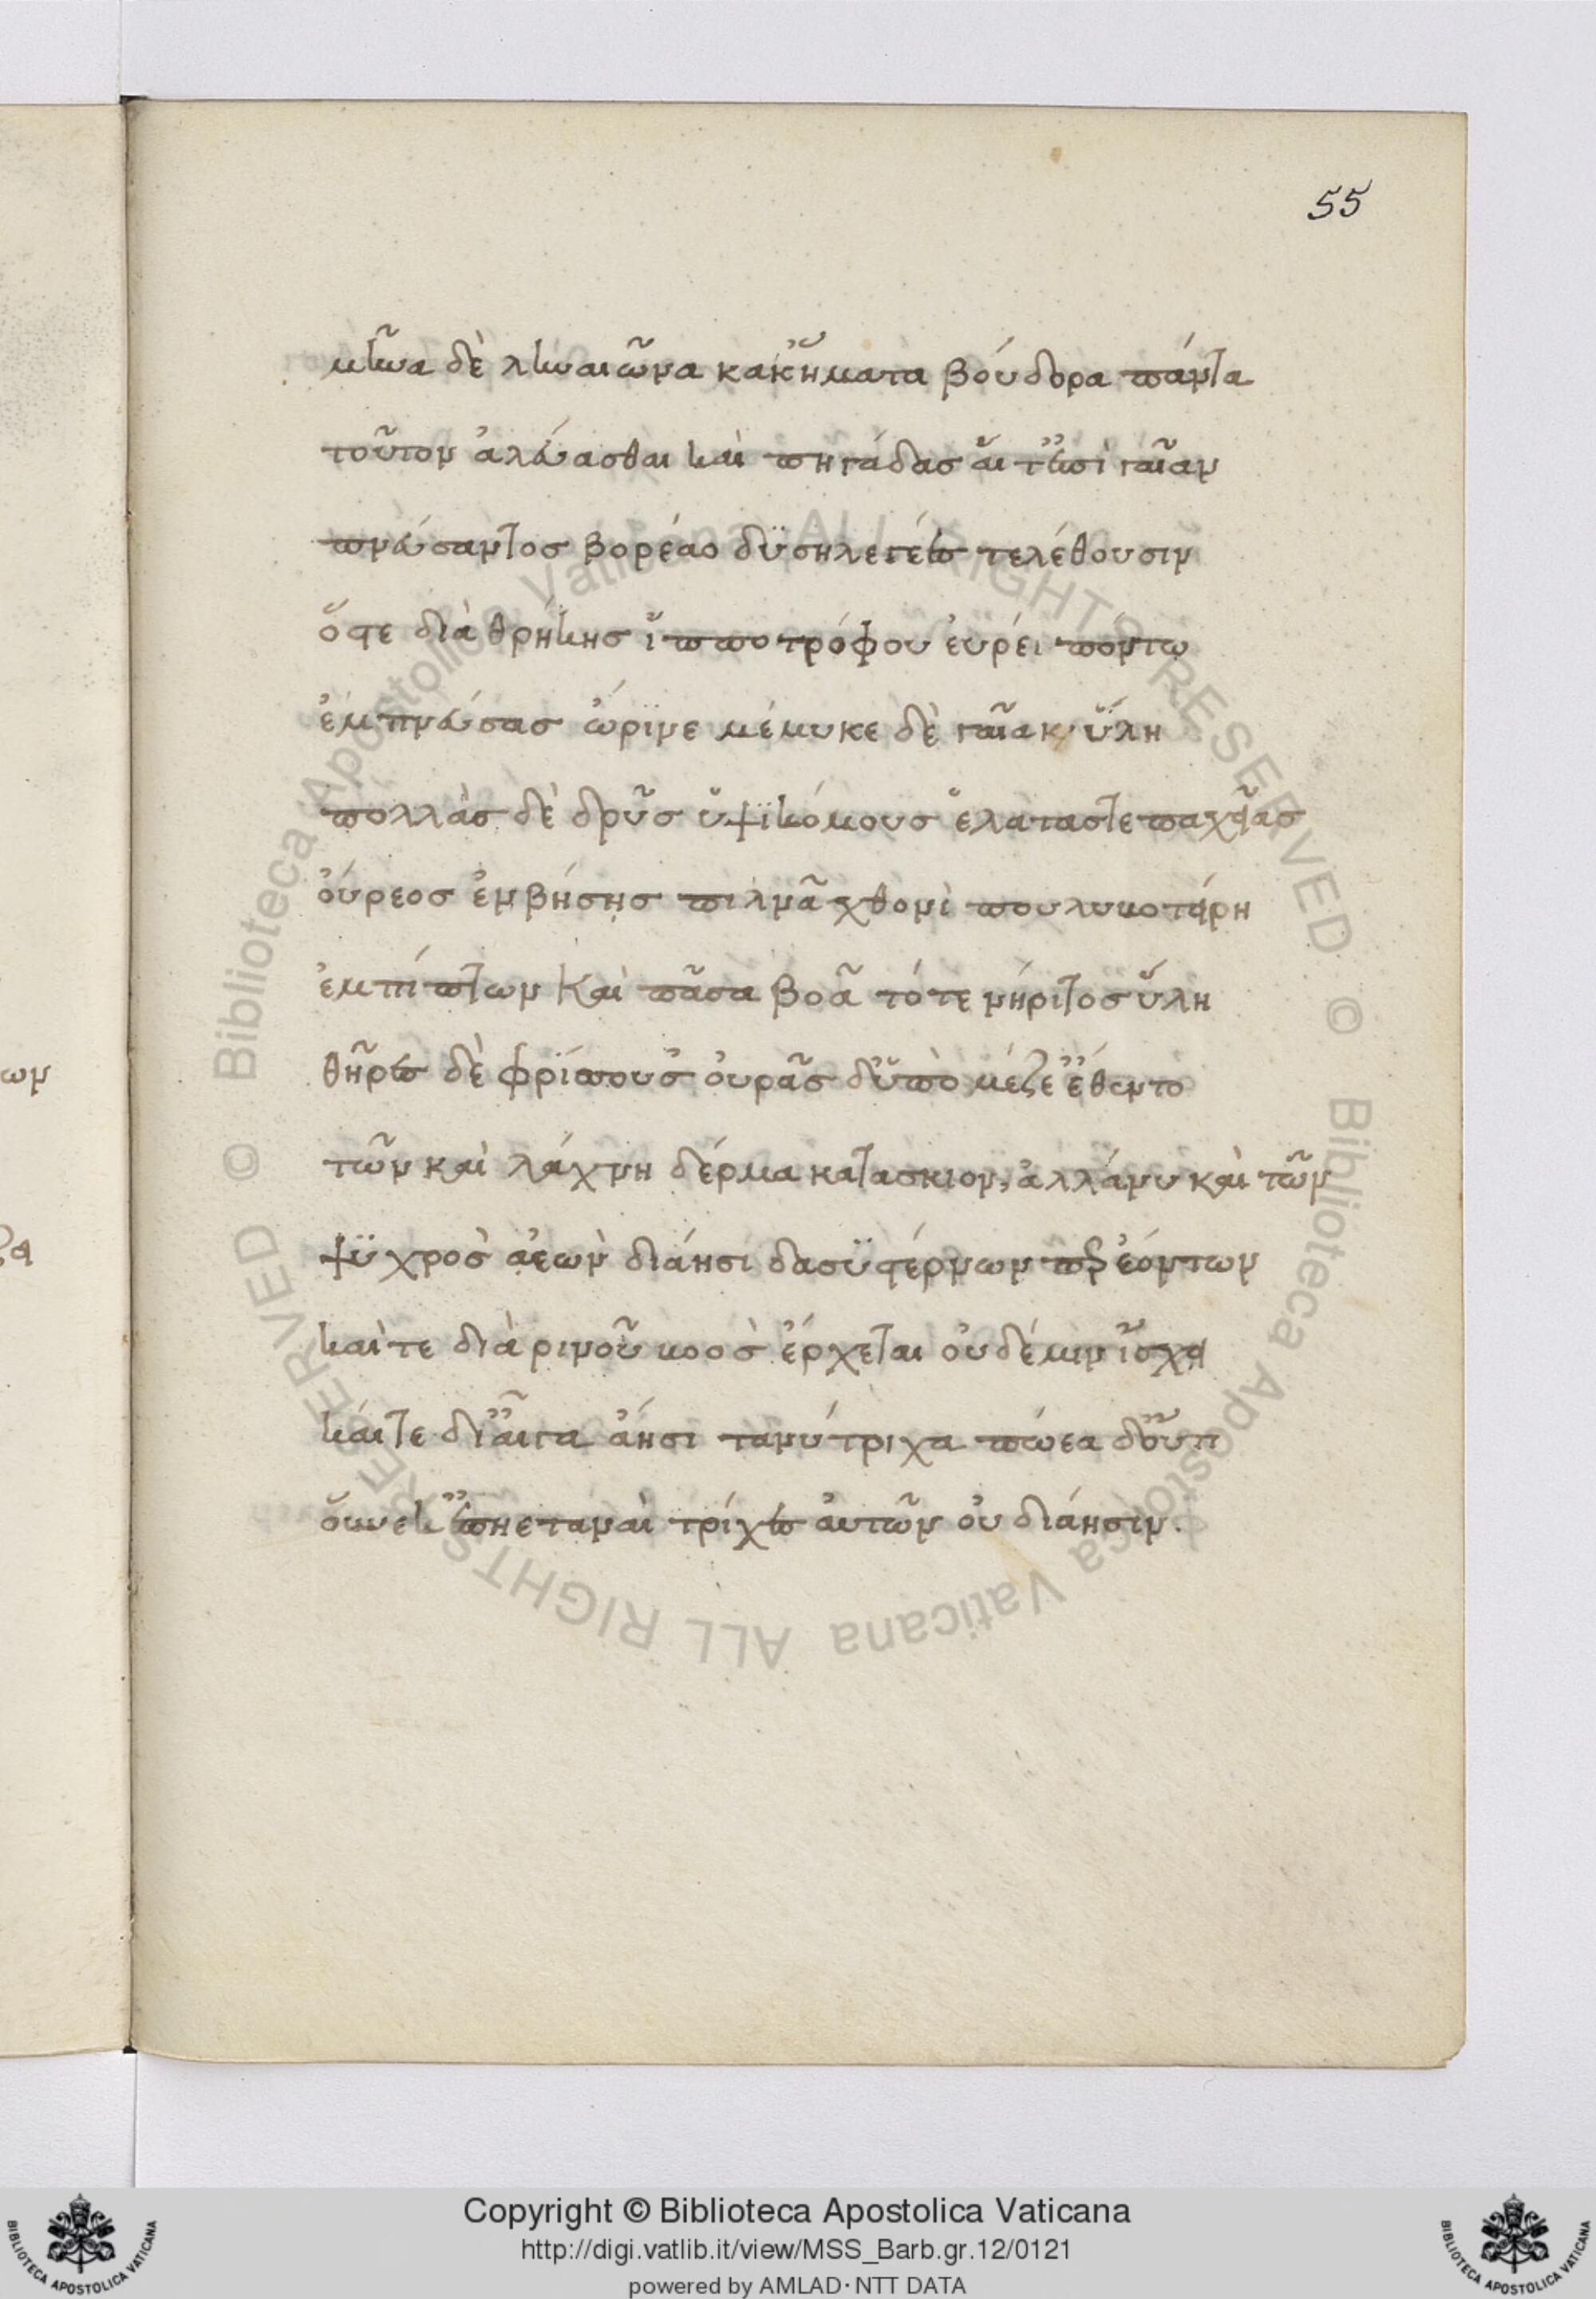 55
μῆνα δὲ ληναιῶνα κακ' ἤματα βούδορα πάντα
τοῦτον ἀλεύασθαι καὶ πηγάδας αἵ τ' ἐπὶ γαῖαν
πνεύσαντος βορέαο δϋσηλεγέες τελέθουσιν
ὅστε διὰ θρήκης ἵπποτρόφου ἐυρέι ποντω
ἐμπνεύσας ὤρϊνε μέμυκε δὲ γαῖα κ ὕλη
πολλὰς δὲ δρῦς ὑψϊκόμους ἐλάταστε παχείας
οὔρεος ἐμβήσης πιλνᾶ χθονὶ πουλυκοτείρη
ἐμπίπτων Καὶ πᾶσα βοᾶ τότε νήριτος ὕλη
θῆρες δὲ φρίσσουσ' οὐρᾶς δ' ὕπὸ μέζε' ἔθεντο
τῶν καὶ λάχνη δέρμα κατασκιον, ἀλλάνυ καὶ τῶν
ψϋχρὸς ἀεὼν διάησι δασϋστέρνων περ ἐόντων
καὶ τε διὰ ρινοῦ κοὸς ἔρχεται οὐδέ μιν ἴσχει
καί τε δι' αἶγα ἄησι τανύτριχα πώεα δ' οὔτι
οὕνεκ' ἐπηεταναὶ τρίχες ἀυτῶν οὐ διάησιν.
ων
Copyright © Biblioteca Apostolica Vaticana
http://digi.vatlib.it/view/MSS_Barb.gr.12/0121
powered by AMLAD·NTT DATA
BIBLIOTECA APOSTOLICA VATICANA
BIBLIOTECA APOSTOLICA VATICANA
© Biblioteca Apostolica Vaticana ALL RIGHTS RESERVED
© Biblioteca Apostolica Vaticana ALL RIGHTS RESERVED